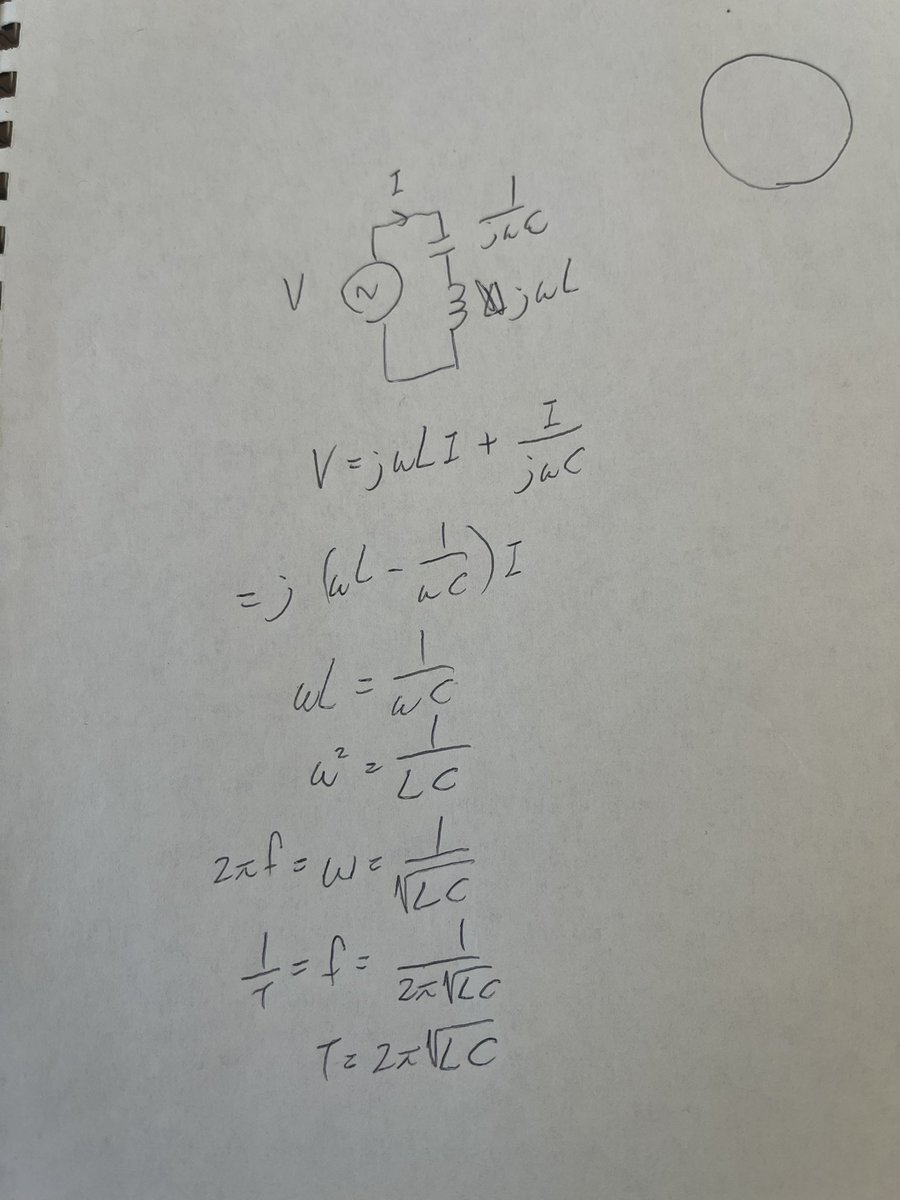 I
1/jωC
V
jωL
V = jωLI + I/jωC
= j (ωL - 1/ωC) I
ωL = 1/ωC
ω² = 1/LC
2πf = ω = 1/√LC
1/T = f = 1/2π√LC
T = 2π√LC